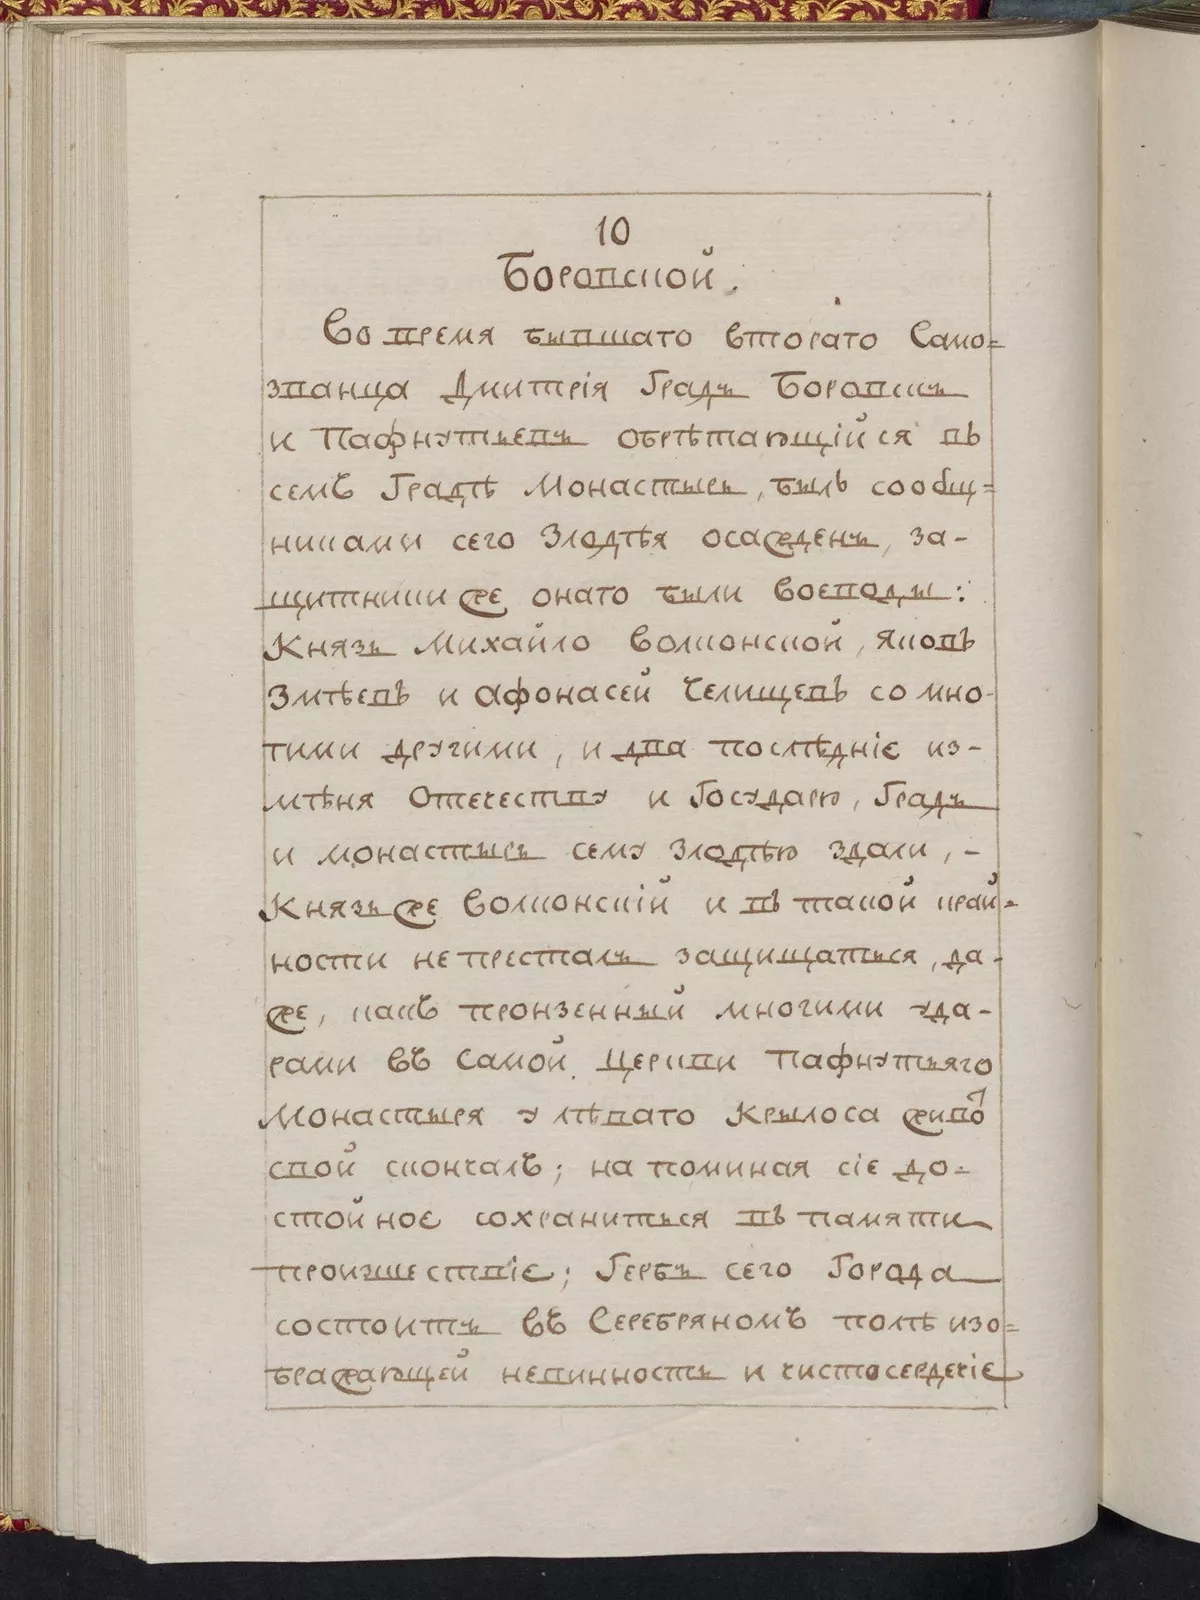 10
Боровской.
Во время бывшаго втораго Само=
званца Дмитрія Градъ Боровскъ
и Пафнутьевъ обрѣтающійся въ
семъ Градѣ Монастырь, былъ сообщ=
никами сего Злодѣя осажденъ, за-
щитники же онаго были Воеводы:
Князь Михайло Волконской, Яковъ
Змѣевъ и Афонасей Челищевъ со мно-
гими другими, и два послѣдніе из-
мѣня Отечеству и Государю, Градъ
и монастырь сему Злодѣю здали, -
Князь же Волконскій и въ такой край=
ности не престалъ защищаться, да-
же, какъ пронзенный многими уда-
рами въ самой Церкви Пафнутьяго
Монастыря у лѣваго Крылоса живо͡т
свой скончалъ; на поминая сіе до=
стойное сохраниться въ памяти
произшествіе; Гербъ сего Города
состоитъ въ Серебряномъ полѣ изо=
бражающей невинность и чистосердечіе